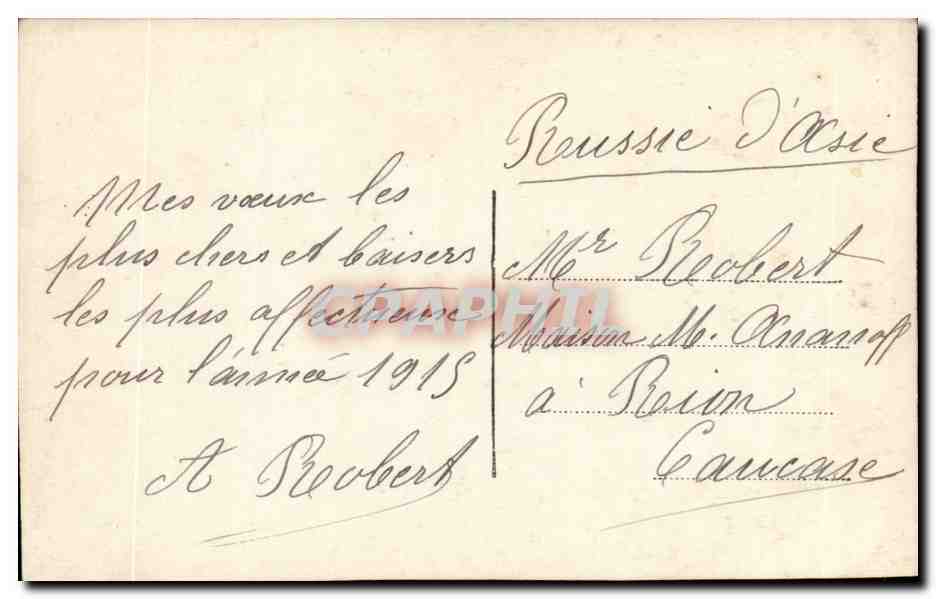 Mes vœux les
plus chers et baisers
les plus affectueux
pour l'année 1915
A Robert
Russie d'Asie
Mr Robert
Maison M. Ananoff
à Rion
Caucase
CPAPHIL